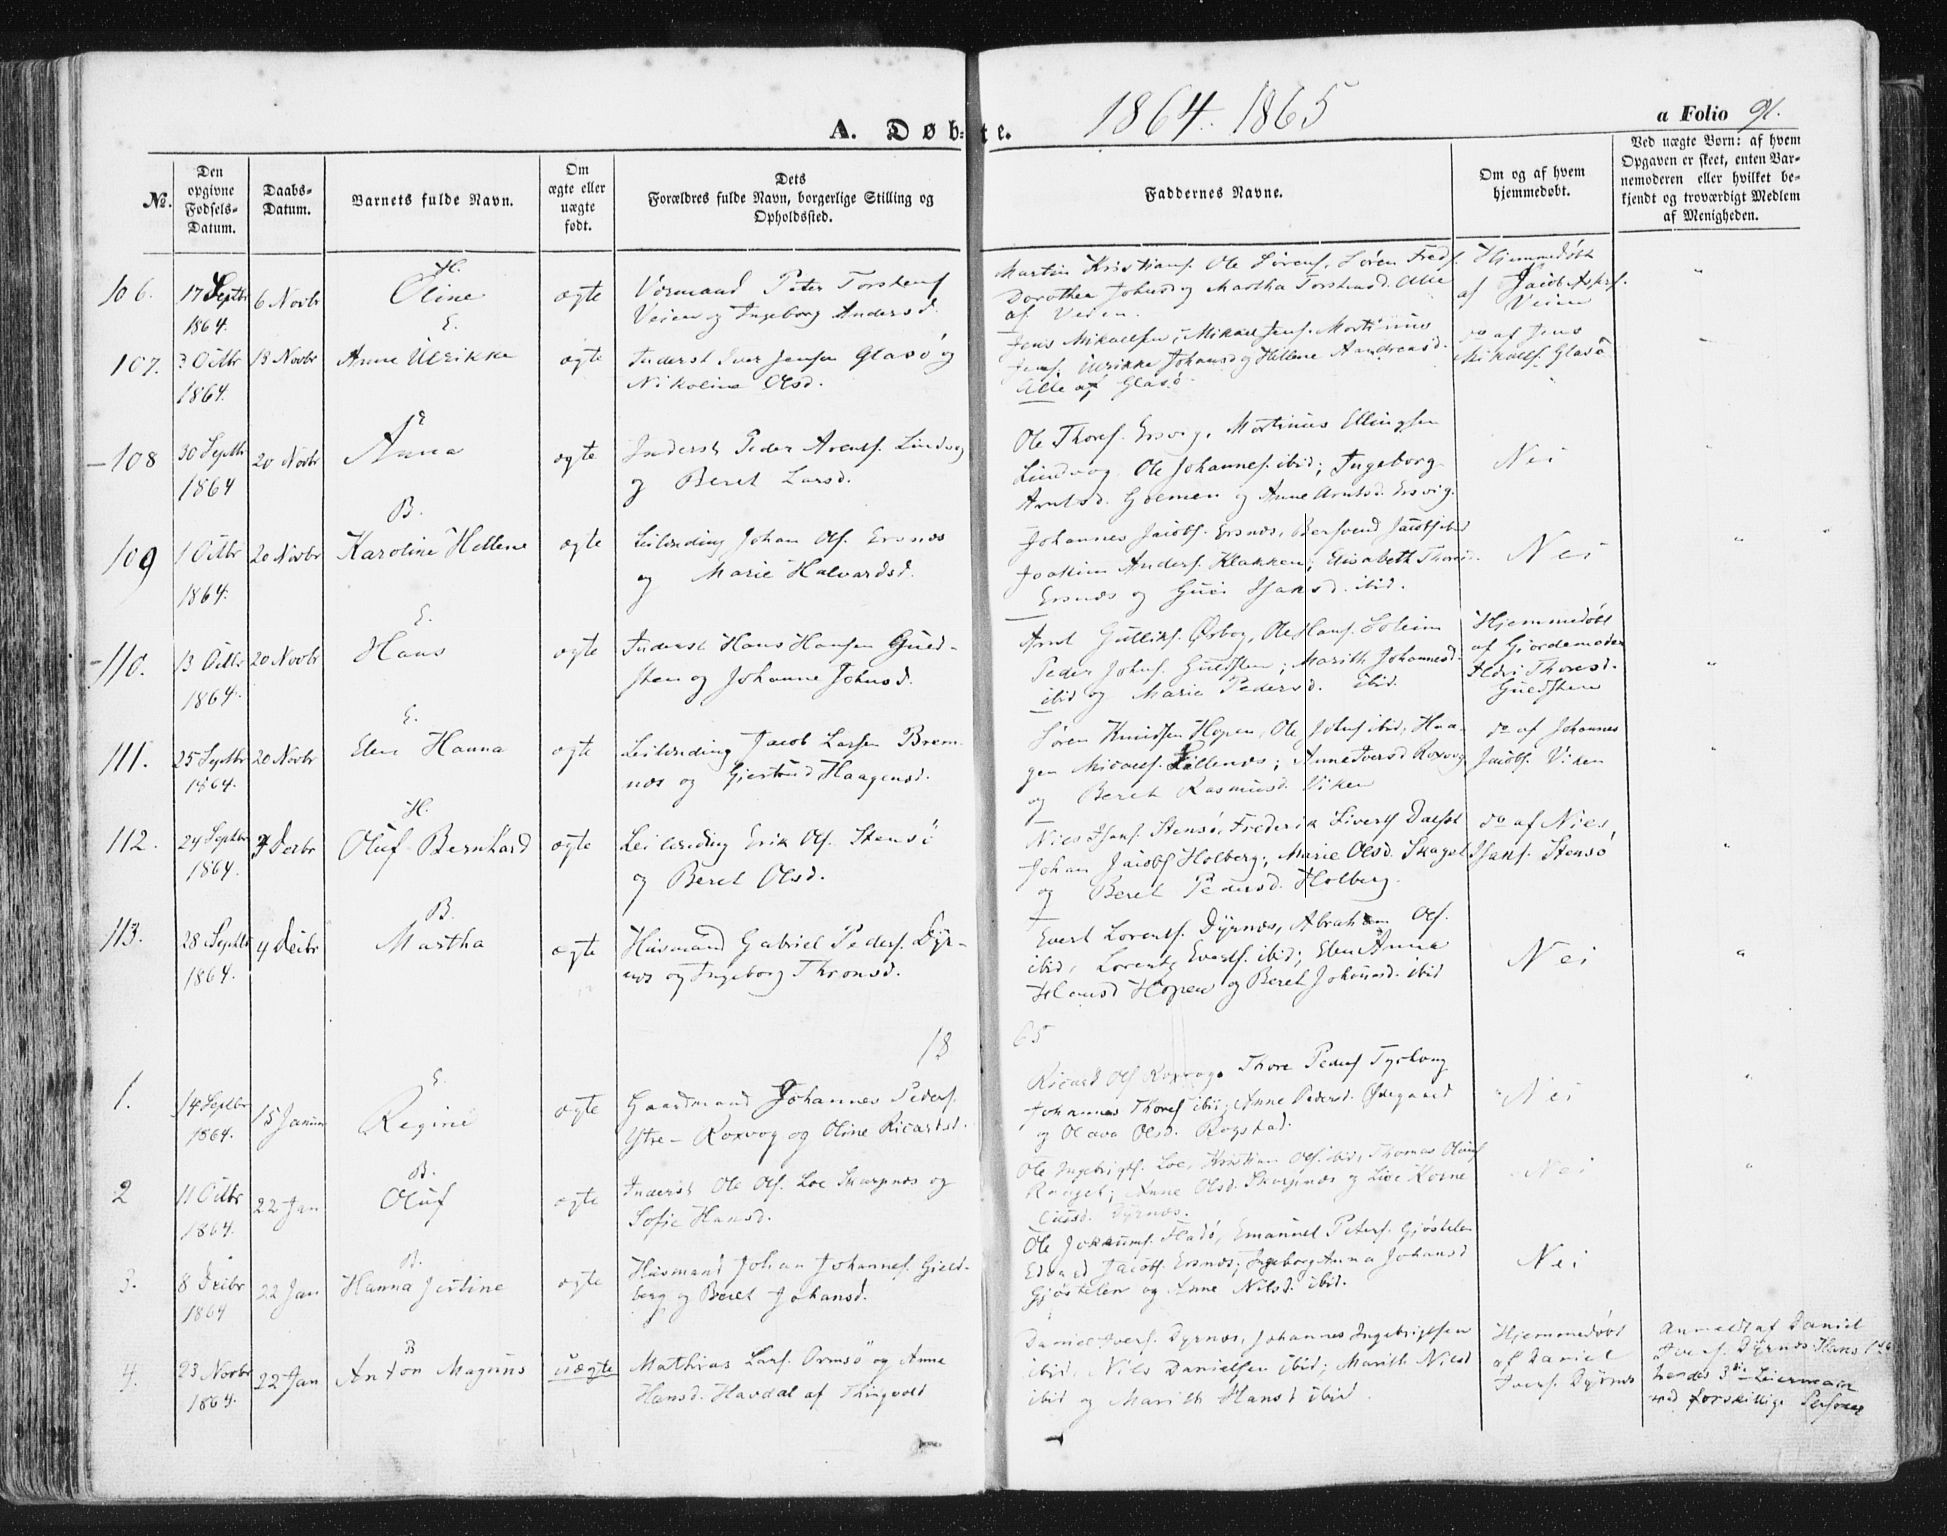 A. Døbte.
1864. 1865
a Folio 91.
№.
Den opgivne Fødsels-Datum.
Daabs-Datum.
Barnets fulde Navn.
Om ægte eller uægte født.
Dets Forældres fulde Navn, borgerlige Stilling og Opholdssted.
Faddernes Navne.
Om og af hvem hjemmedøbt.
Ved uægte Børn: af hvem Opgaven er skeet, enten Barnemoderen eller hvilket bekjendt og troværdigt Medlem af Menigheden.
106. 17 Septbr 1864. 6 Novbr
H.
Oline
ægte
Peter Torstens
Veien og Ingeborg Andersd.
Martin Kristians. Ole Sørens. Søren Freds.
Dorothea Johnsd og Martha Torstensd. Alle
af Veien.
Hjemmedøbt
af Jacob
Veien
"
107. 3 Octbr 1864. 13 Novbr
E.
Anne Ulrikke
ægte
Inderst Iver Jensen Glasø og
Nikoline Olsd.
Jens Mikaelsen, Mikael Jens. Mortinus
Jens. Ulrikke Johansd og Hellene Andreasd.
Alle af Glasø.
do af Jens
Mikaels. Glasø
108 30 Septbr 1864 20 Novbr
E
Anna
ægte
Inderst Peder Arents. Lindvog
og Beret Larsd.
Ole Thores. Ersvig, Mortinus Ellingsen
Lindvog. Ole Johannes. ibid; Ingeborg
Arntsd. Goemen og Anne Arntsd. Ersvig.
Nei
"
109 1 Octbr 1864. 20 Novbr
B.
Karoline Hellene
ægte
Leilending Johan Ols. Ersnæs
og Marie Halvardsd.
Johannes Jacobs. Ersnæs, Bersvend Jacobs ibid
Joakim Anders. Klakken; Elisabeth
Ersnæs og Guri Isaksd. ibid.
Nei
"
110. 13 Octbr 1864. 20 Novbr
E.
Hans
ægte
Inderst Hans Hansen Guld-
sten og Johanne Johnsd.
Arnt Gulliks. Ørbog, Ole Hans. Soleim
Peder Johns. Guldsten; Marith Johannesd.
ibid og Marie Pedersd. ibid.
Hjemmedøbt
af Gjordemoder
Thoresd.
Guldsten
"
111. 25 Septbr 1864. 20 Novbr
E.
Elen Hanna
ægte
Leilending Jacob Larsen Brem-
næs og Gjertrud Haagensd.
Søren Knudsen Hopen, Ole Johns ibid, Haa-
gen Micaels. Lillenæs; Anne Iversd Roxvog
og Beret Rasmusd. Viken
do af Johannes
Jacobs. Viken
"
112. 24 Septbr 1864. 4 Decbr
H.
Oluf Bernhard
ægte
Leilending Erik Ols. Stensø
og Beret Olsd.
Niels Isaks. Stensø, Frederik Siverts
Johan Jacobs Holberg; Marie Olsd. Skaget
og Beret Pedersd. Holberg.
do af Niels
Isaks. Stensø
"
113. 28 Septbr 1864. 4 Decbr
B.
Martha
ægte
Husmand Gabriel Peders. Dyr-
næs og Ingeborg Thronsd.
Evert Lorents. Dyrnæs, Abraham Ols.
ibid, Lorentz Everts. ibid; Elen Anna
Hansd Hopen og Beret Johansd. ibid
Nei
"
1865
1. 14 Septbr 1864. 15 Januar
E.
Regine
ægte
Gaardmand Johannes Peders.
Ytre-Roxvog og Oline Ricardsd.
Ricard Ols Roxvog. Thore Peders
Johannes Thores ibid; Anne Pedersd. Ødegaard
og Olava Olsd. Rogstad.
Nei
"
2 11 Octbr 1864. 22 Jan
B.
Oluf
ægte
Inderst Ole Ols. Loe Skarpnæs og
Sofie Hansd.
Ole Ingebrigts. Loe, Kristian Ols. ibid, Thomas
Anne Olsd. Skarpnæs og
Dyrnæs.
Nei
"
3. 8 Decbr 1864 22 Jan
B.
Hanna Jertine
ægte
Husmand Johan Johannes. Gjeld-
berg og Beret Johansd.
Ole Jokums. Fladø, Emanuel Peters. Gjøstelen
Edvard Jacobs. Ersnæs; Ingeborg Anna Johansd
Gjøstelen og Anne Nilsd. ibid.
Nei
4. 23 Novbr 1864. 22 Jan
B
Anton Magnus
uægte
Mathias Lars. Ormsø og Anne
Hansd. Havdal af Thingvold
Daniel Ivers. Dyrnæs, Johannes Ingebrigtsen
ibid, Nils Danielsen ibid; Marith Nilsd
ibid og Marith Hansd ibid
Hjemmedøbt
af Daniel
Ivers. Dyrnæs
Anmeldt af Daniel
Ivers. Dyrnæs Hans
hendes 3die Leiermaal
med forskillige Personer